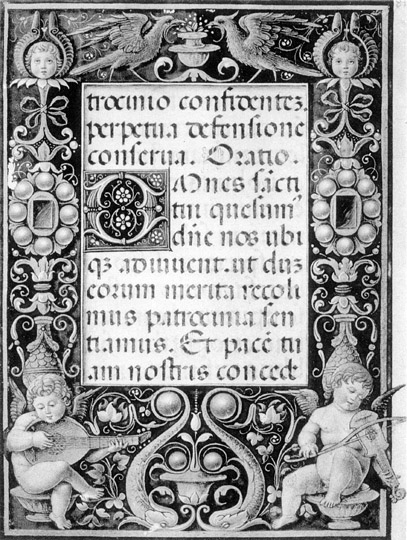 trocinio confidentez.
perpetua defensione
conserua. Oratio.
OMnes sãcti
tui quesumˀ
dñe nos ubi
qȝ adiuuent. ut duȝ
eorum merita recoli
mus patrocinia sen
tiamus. Et pacẽ tu
am nostris conced